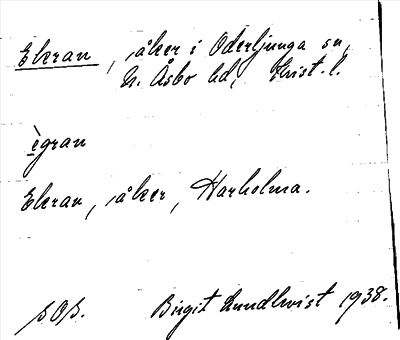 Ekran, åker i Oderljunga sn,
N. Åsbo hd, Krist. l.
ègran
Ekran, åker, Harholma.
Birgit Lundkvist 1938.